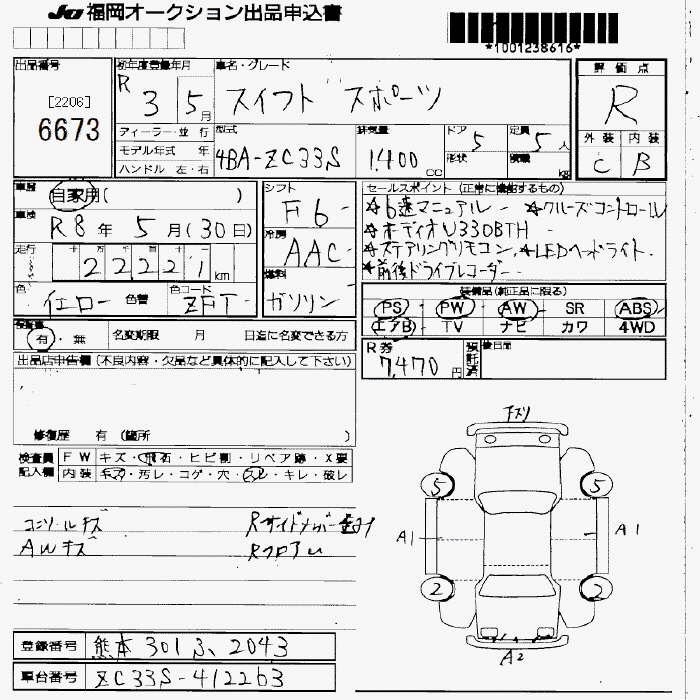 JU 福岡オークション出品申込書
*1001238616*
出品番号
[2206]
6673
初年度登録年月
R 3 5月
車名・グレード
スイフト スポーツ
評価点
R
ディーラー・並行
モデル年式 年
ハンドル 左・右
型式
4BA-ZC33S
排気量
1,400 cc
ドア 5
形状
定員 5人
積載 kg
外装 内装
C B
車歴
自家用( )
車検
R8年 5月(30日)
走行
十 万 千 百 十
22221 km
色
イエロー 色替
色コード
ZFT
シフト
F6
冷房
AAC
燃料
ガソリン
セールスポイント (正常に機能するもの)
☆6速マニュアル ☆クルーズコントロール
☆オーディオU330BTH
☆ステアリングリモコン.☆LEDヘッドライト.
☆前後ドライブレコーダー
装備品(純正品に限る)
PS・PW・AW・SR ABS
エアB・TV ナビ・カワ 4WD
有・無 名変期限 月 日迄に名変できる方
R券
7,470円
預託済
後日品
出品店申告欄(不良内容・欠品など具体的に記入して下さい)
修復歴 有 (箇所 )
検査員記入欄
FW キズ・飛石・ヒビ割・リペア跡・X要
内装 キズ・汚レ・コゲ・穴・スレ・キレ・破レ
コンソールキズ
AWキズ
Rフロア
キズリ
5 5
A1 A1
2 2
A2
登録番号 熊本 301 2043
車台番号 ZC33S-412263